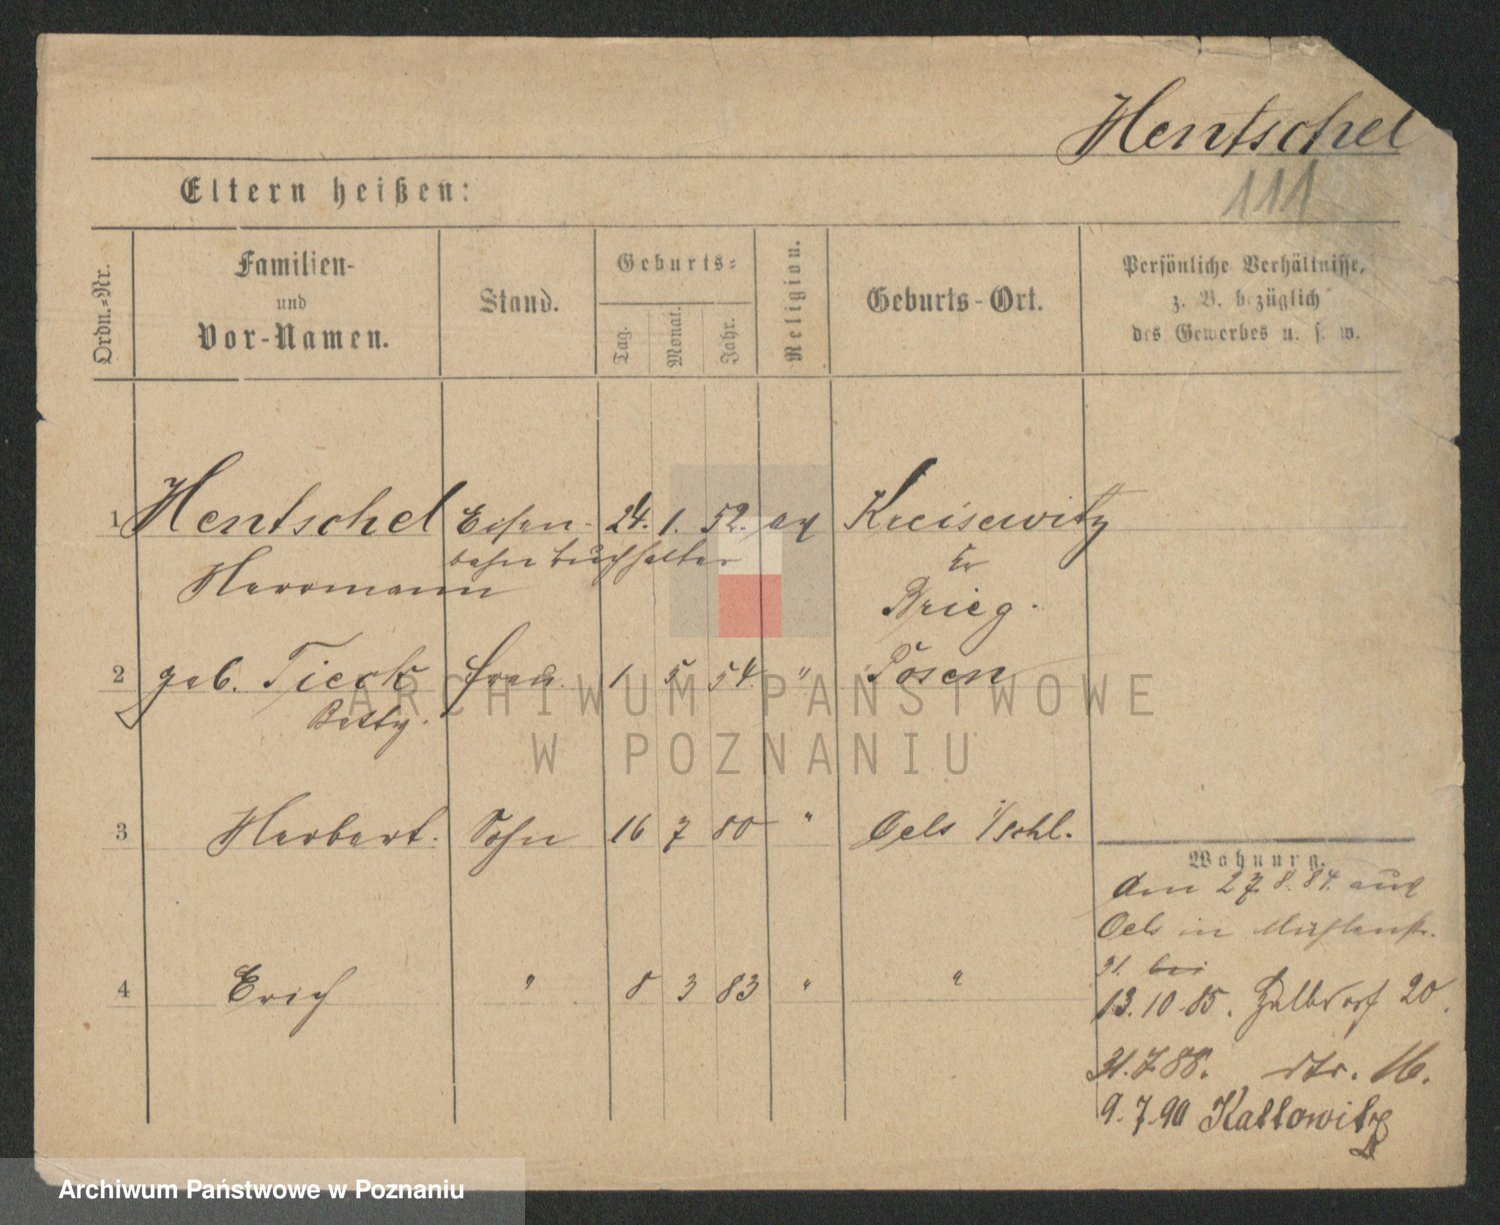 Hentschel
111
Eltern heißen:
Ordn.-Nr.
Familien-
und
Vor-Namen.
Stand.
Geburts-
Tag.
Monat.
Jahr.
Religion.
Geburts-Ort.
Persönliche Verhältnisse,
z. B. bezüglich
des Gewerbes u. s. w.
1 Hentschel Eisen- 24. 1. 52. ev Kreisewitz
bahn buchhalter
Herrmann Kr Brieg.
2 geb. Tieck frau 1 5 54. " Posen
Betty.
3 Herbert. Sohn 16 7 80 " Oels i/schl.
4 Erich " 8 3 83 " "
Wohnung.
den 27.8.84. aus
Oels in Mühlenstr.
31. bei
13.10.85. Halbdorf 20.
31.7.88. dto. 16.
9.7.90 Kattowitz
ARCHIWUM PAŃSTWOWE
W POZNANIU
Archiwum Państwowe w Poznaniu